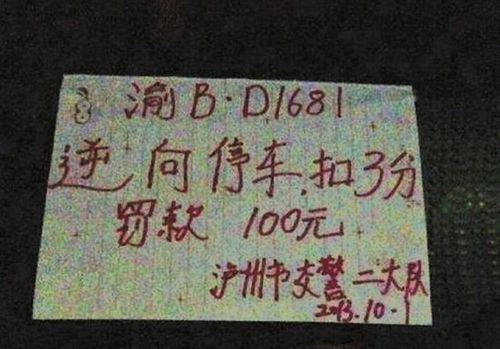 渝B·D1681
逆向停车,扣3分
罚款 100元
泸州市交警二大队
2013.10.1